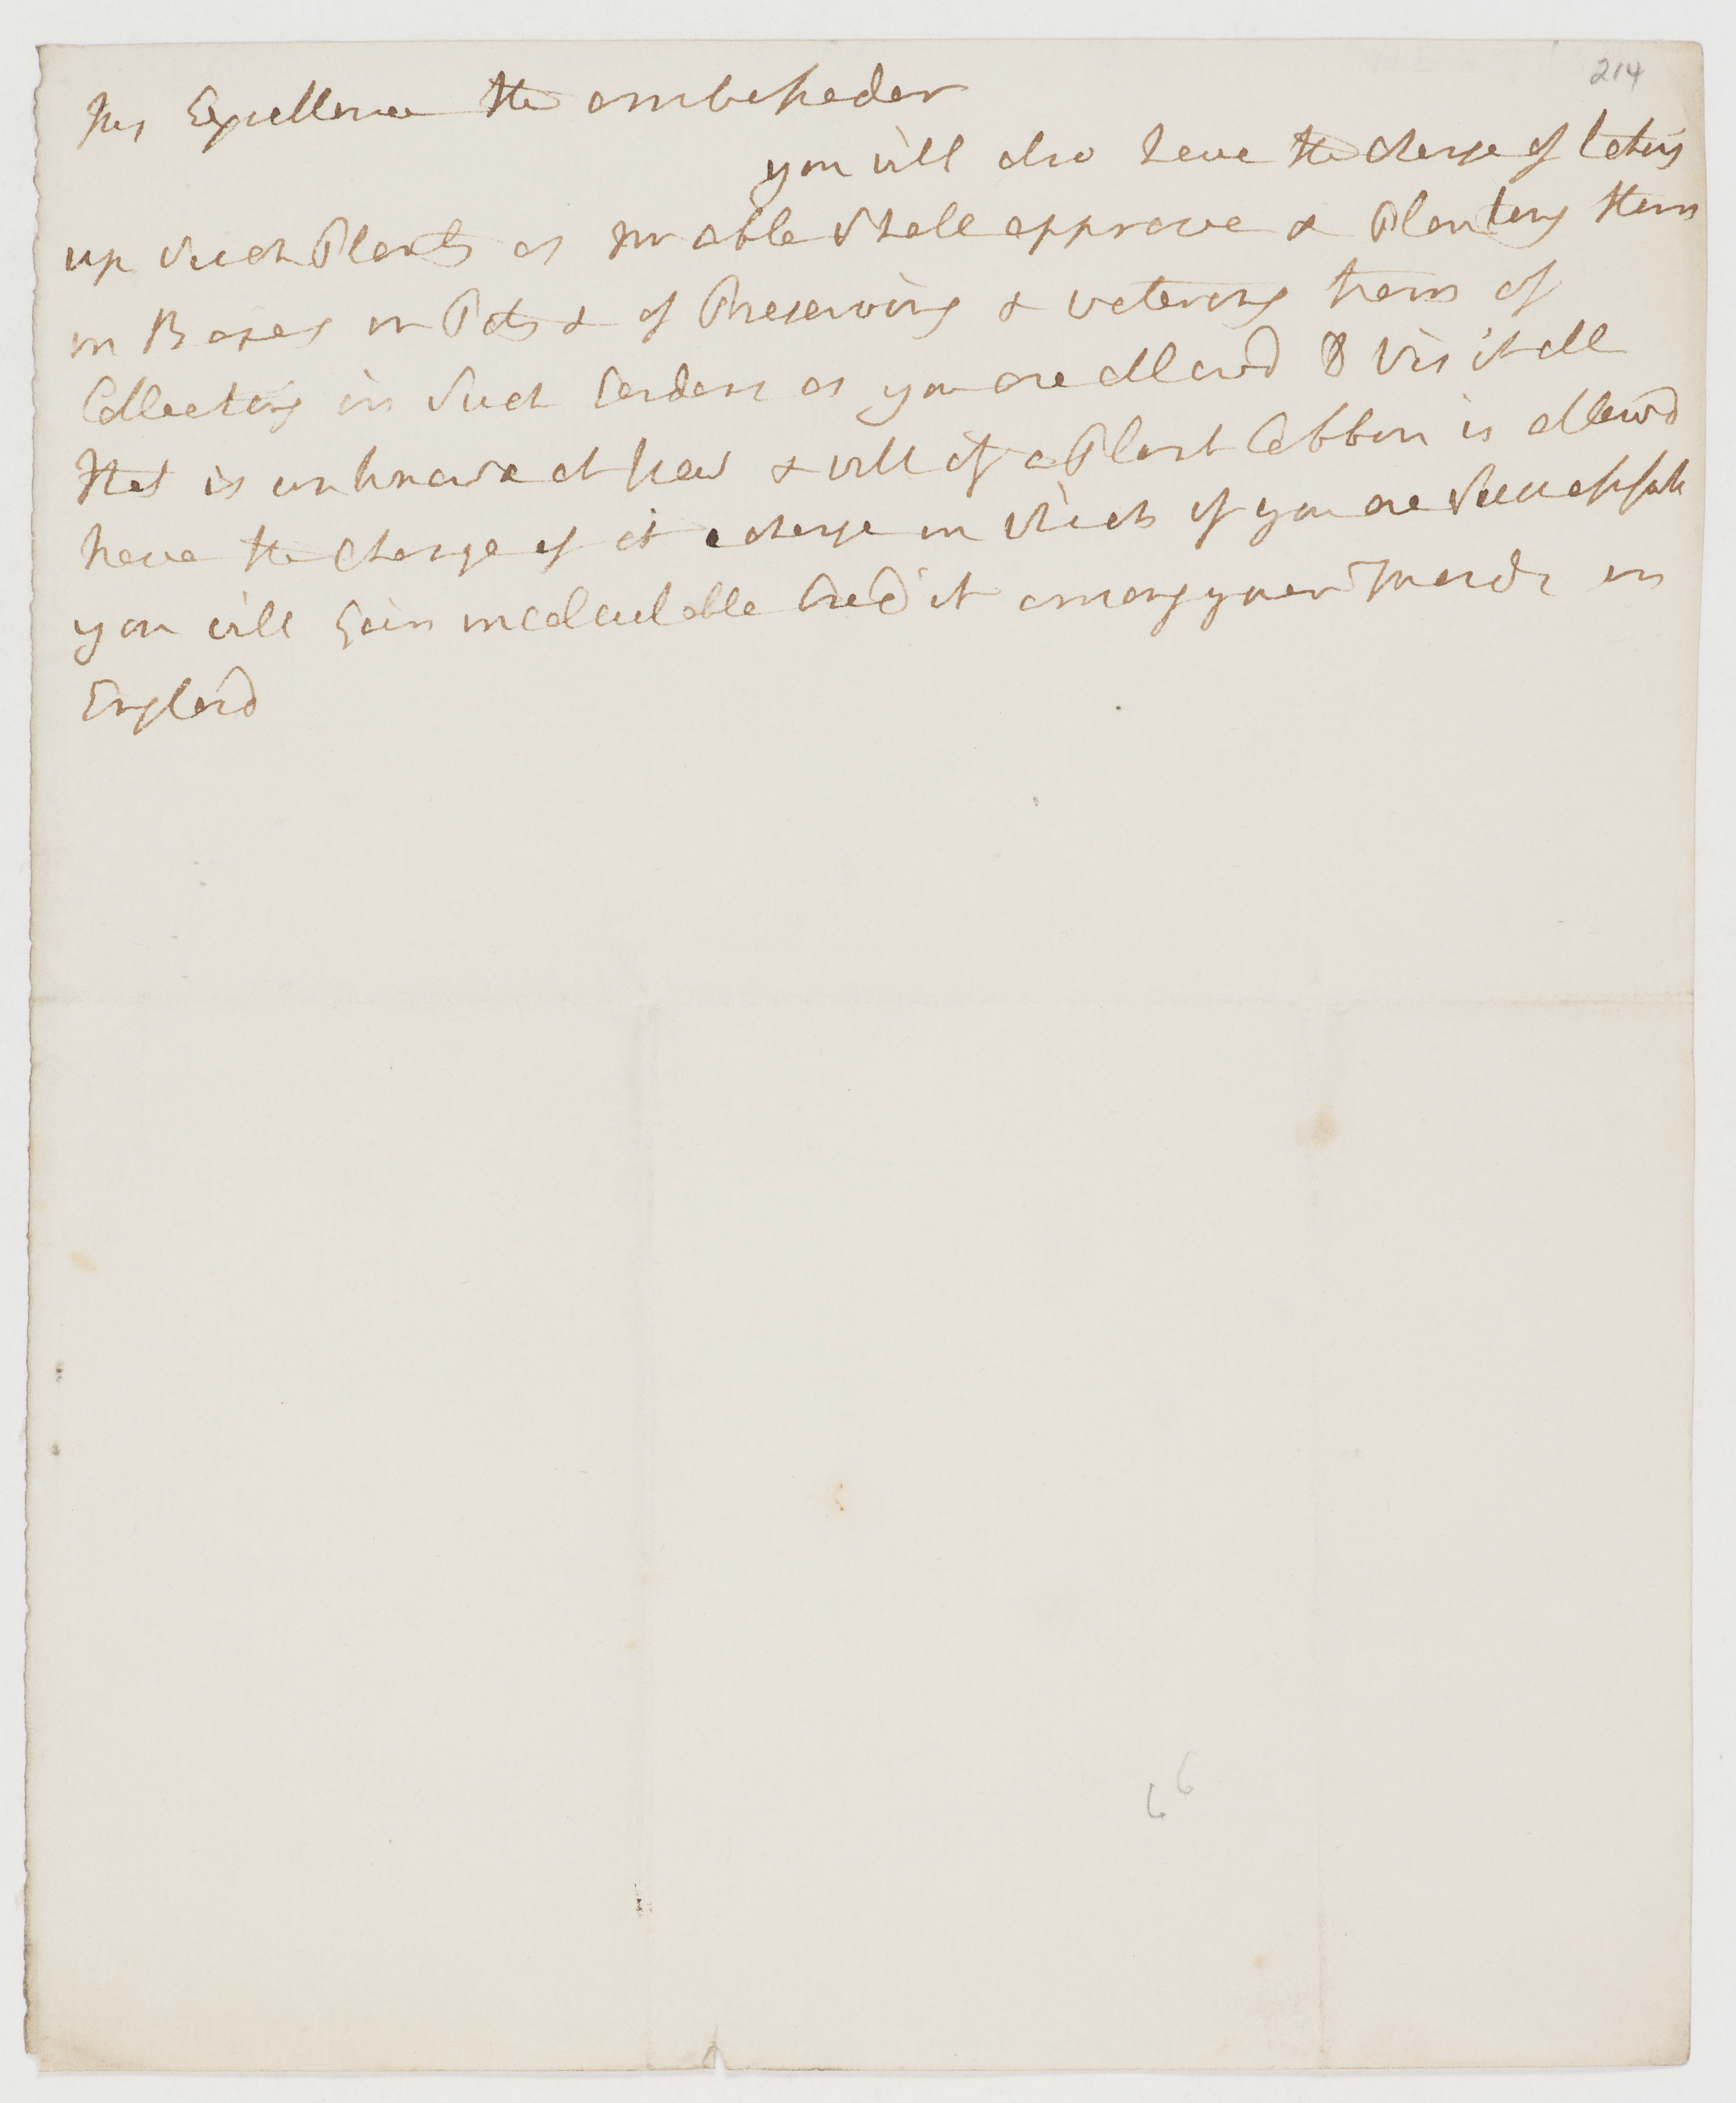 214
his Excellence the ambassador
you will also have the charge of taking
up Such Plants as Mr Able Shall approve & Planting them
in Boxes in Pots & of Preserving & watering them of
Collecting in Such Gardens as you are allowd to visit all
that is unknown at kew & will if a Plant Cabbin is allowd
have the Charge of it a charge in which if you are Successfull
you will Gain incalculable Credit among your Friends in
England
66